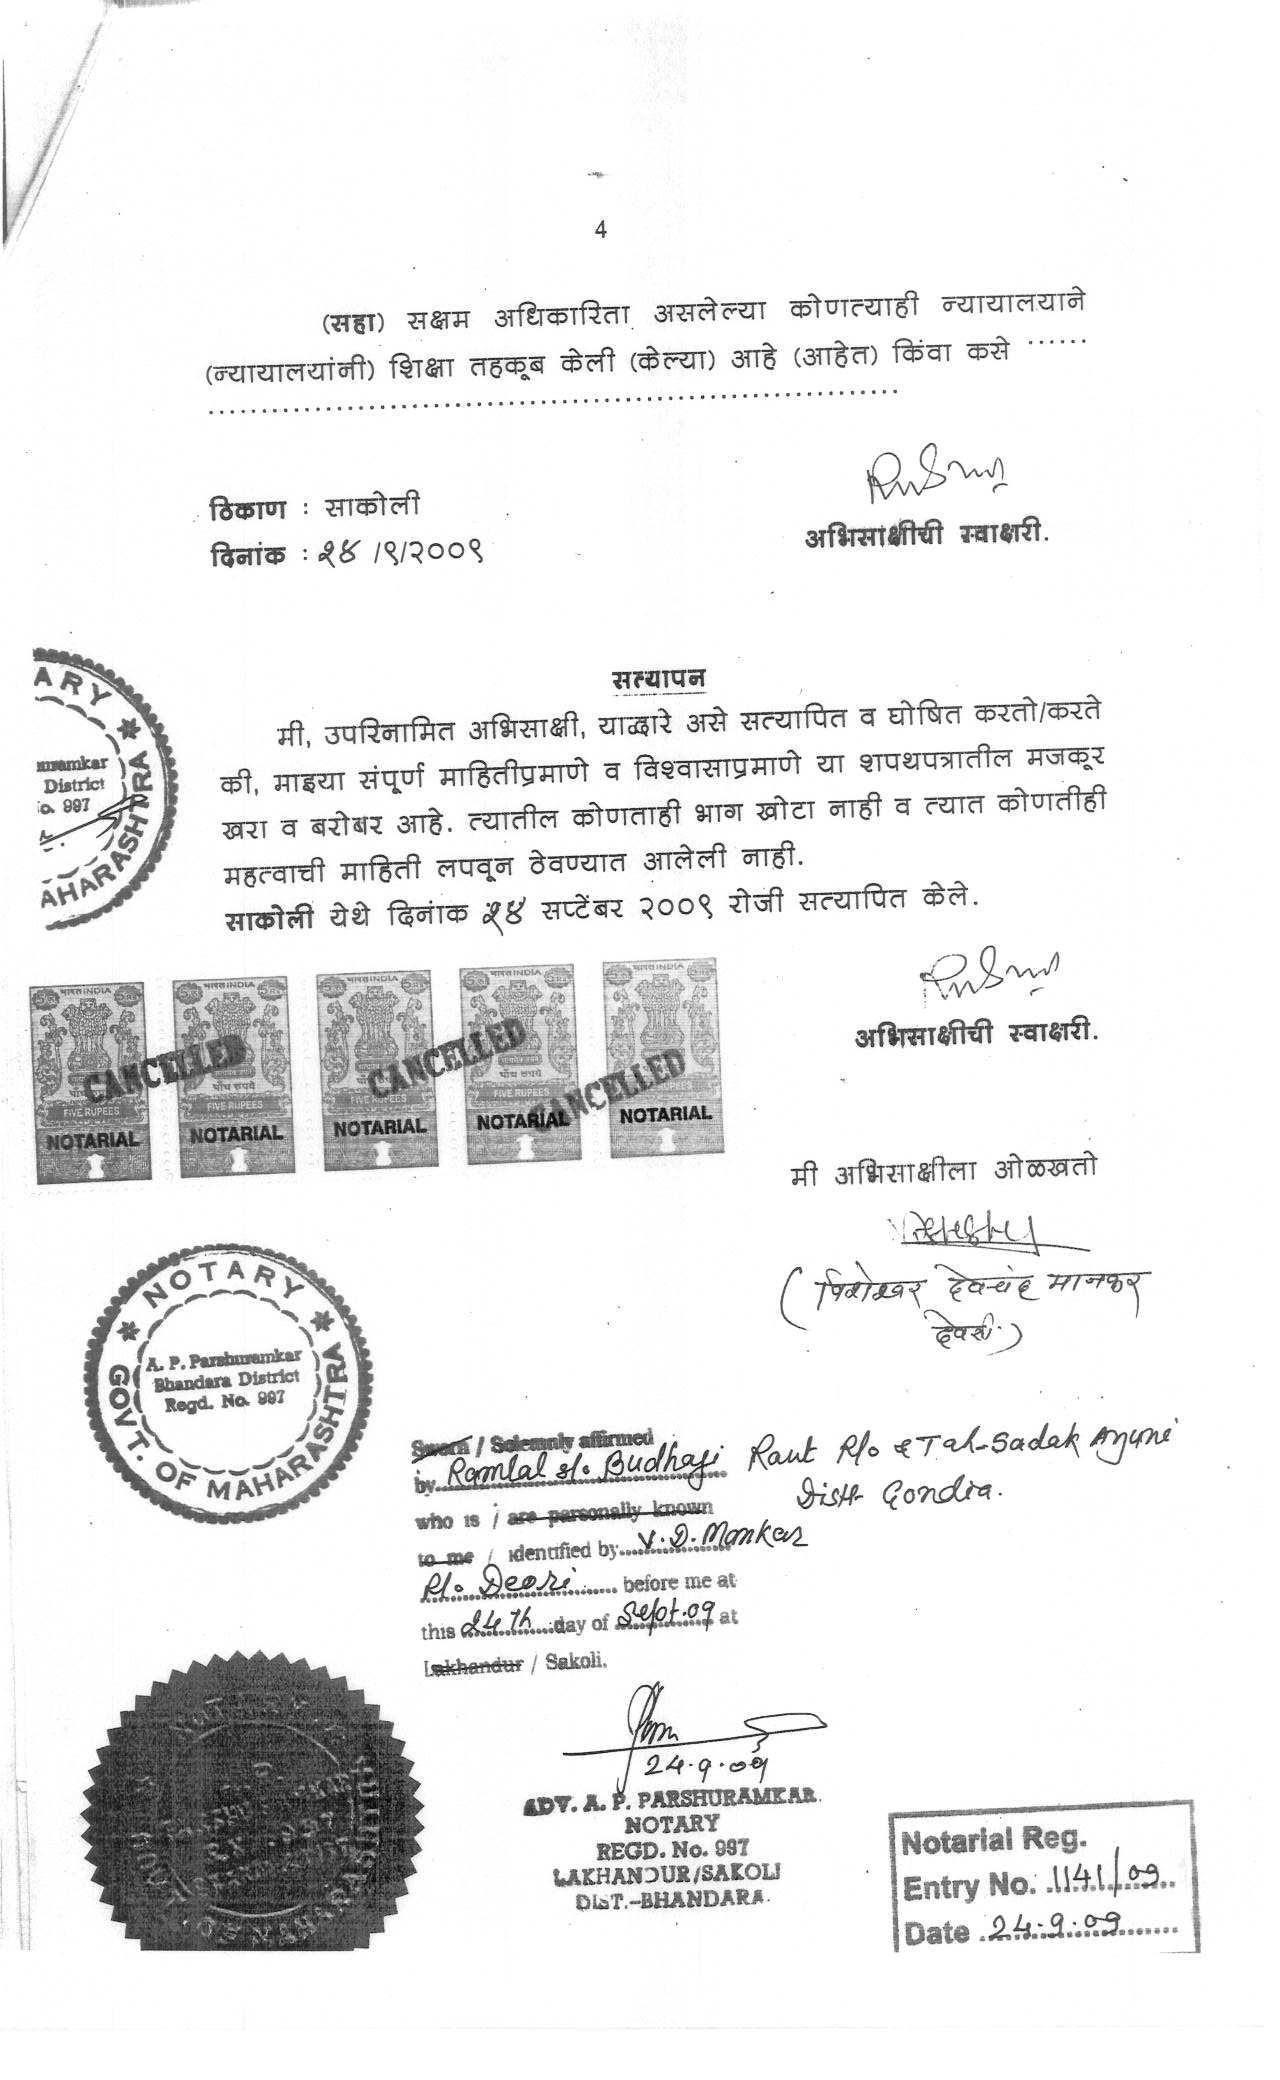 4
(सहा) सक्षम अधिकारिता असलेल्या कोणत्याही न्यायालयाने
(न्यायालयांनी) शिक्षा तहकूब केली (केल्या) आहे (आहेत) किंवा कसे ······
··································································
ठिकाण : साकोली
दिनांक : २४ /९/२००९
अभिसाक्षीची स्वाक्षरी.
सत्यापन
मी, उपरिनामित अभिसाक्षी, याद्वारे असे सत्यापित व घोषित करतो/करते
की, माझ्या संपूर्ण माहितीप्रमाणे व विश्वासाप्रमाणे या शपथपत्रातील मजकूर
खरा व बरोबर आहे. त्यातील कोणताही भाग खोटा नाही व त्यात कोणतीही
महत्वाची माहिती लपवून ठेवण्यात आलेली नाही.
साकोली येथे दिनांक २४ सप्टेंबर २००९ रोजी सत्यापित केले.
अभिसाक्षीची स्वाक्षरी.
ARY * MAHARASHTRA
District
No. 997
भारत INDIA भारत INDIA भारत INDIA भारत INDIA भारत INDIA
CANCELLED CANCELLED CANCELLED
पाँच रुपये
FIVE RUPEES FIVE RUPEES FIVE RUPEES FIVE RUPEES FIVE RUPEES
NOTARIAL NOTARIAL NOTARIAL NOTARIAL NOTARIAL
मी अभिसाक्षीला ओळखतो
देवचंद मानकर
NOTARY * GOVT. OF MAHARASHTRA *
A. P. Parshuramkar
Bhandara District
Regd. No. 997
Sworn / Solemnly affirmed
by Ramlal s/o. Budhaji Raut R/o & Tah-Sadak Arjuni
Distt- Gondia.
who is / are personally known
to me / identified by V. D. Mankar
R/o. Deori before me at
this 24th day of Sept.09 at
Lakhandur / Sakoli.
24.9.09
ADV. A. P. PARSHURAMKAR.
NOTARY
REGD. No. 997
LAKHANDUR/SAKOLI
DIST.-BHANDARA.
Notarial Reg.
Entry No. 1141/09
Date 24.9.09